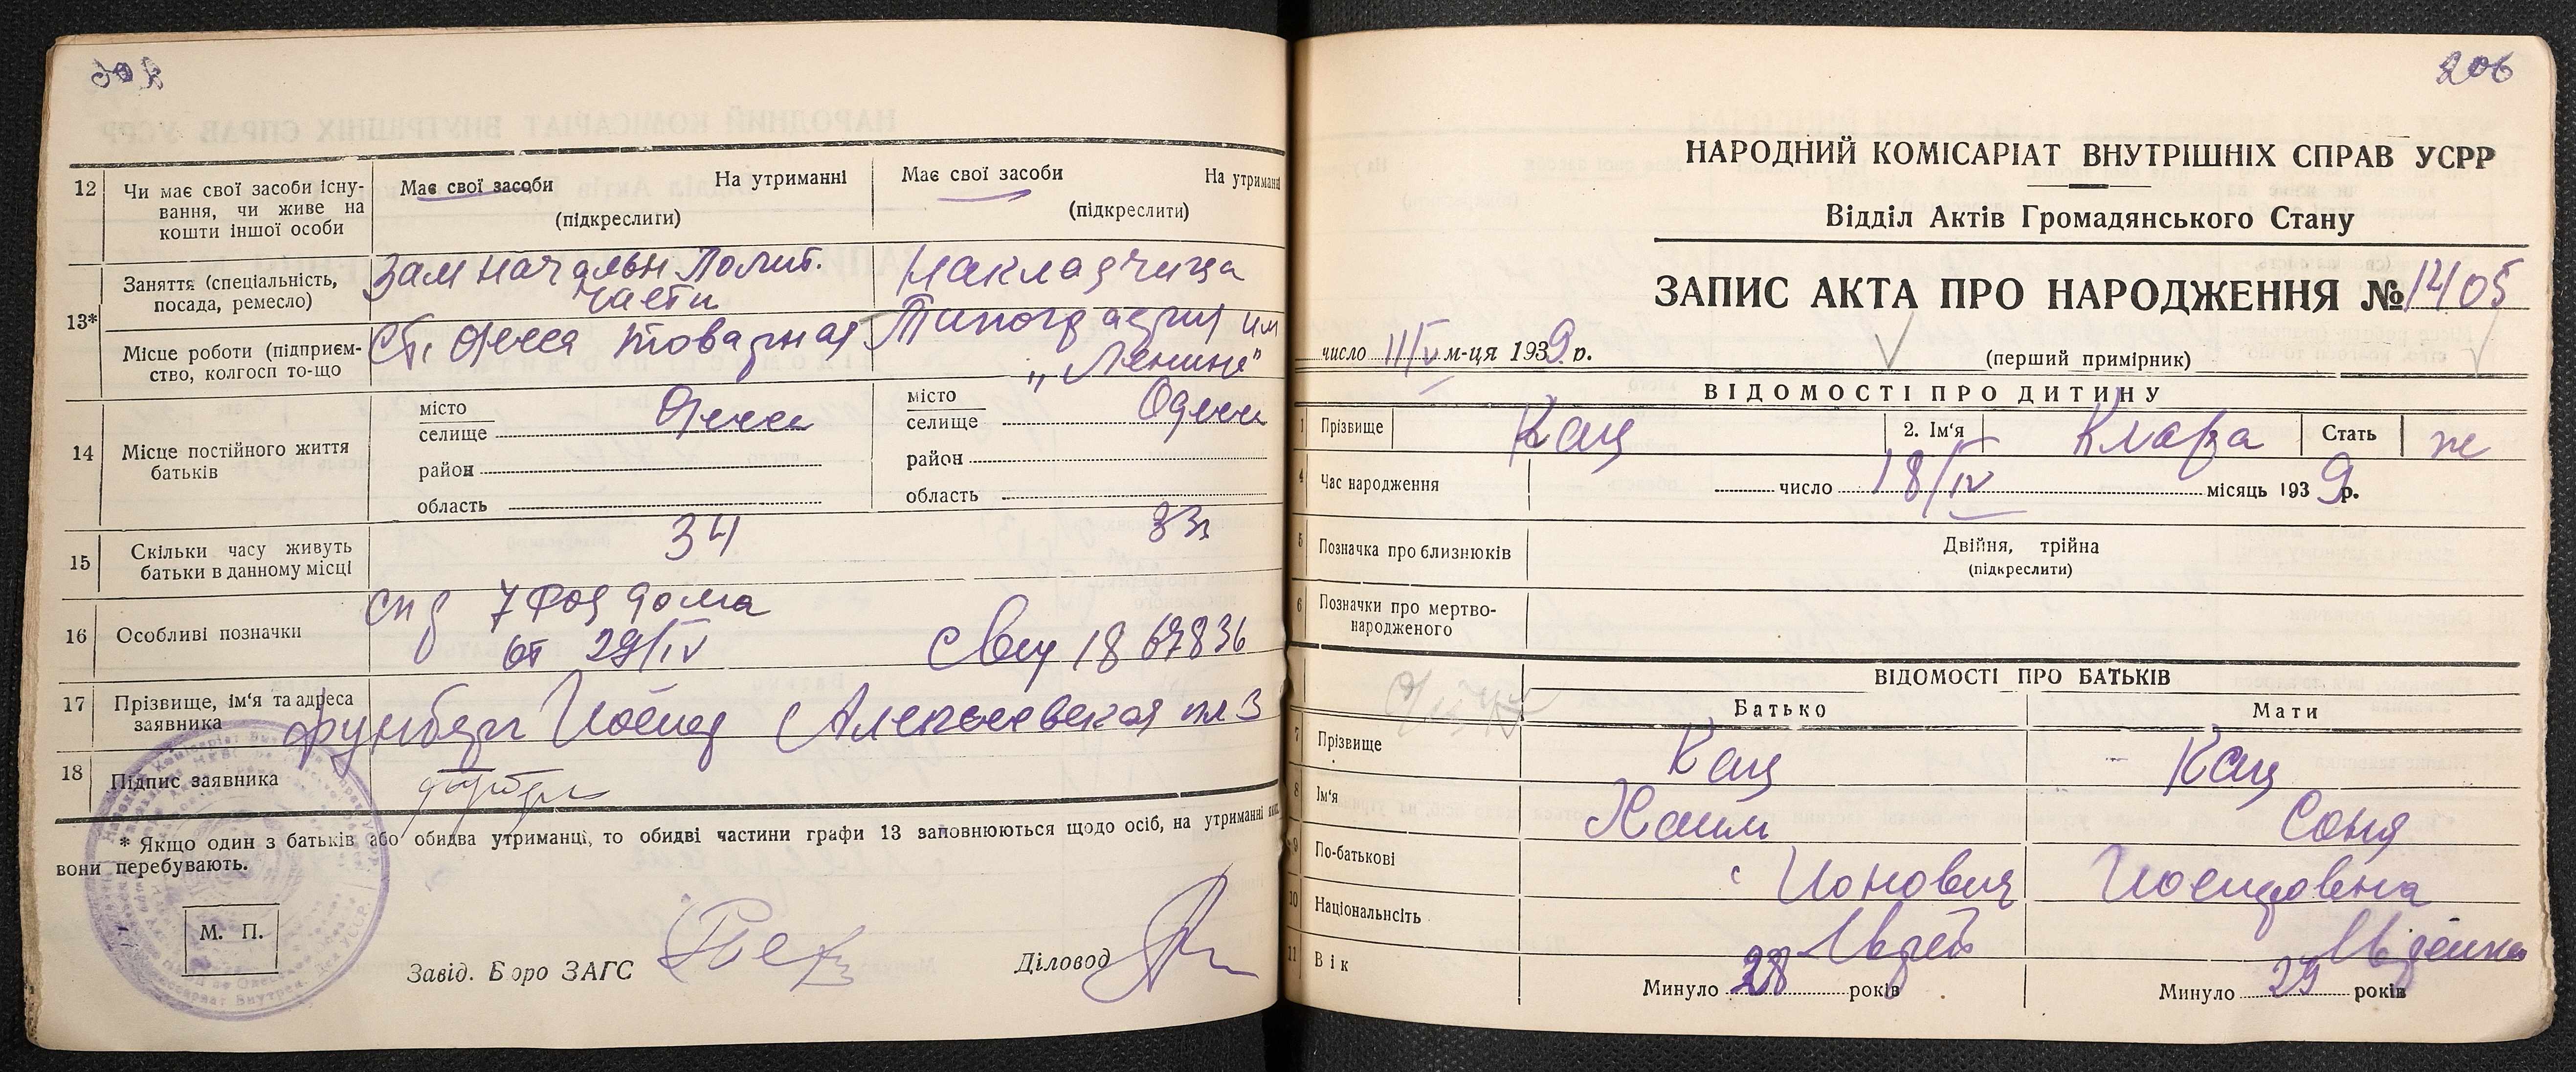 12 Чи має свої засоби існування, чи живе на кошти іншої особи
Має свої засоби На утриманні
(підкреслиги)
Має свої засоби На утриманні
(підкреслити)
13* Заняття (спеціальність, посада, ремесло)
Зам началън Полит. части
Накладчица
Місце роботи (підприємство, колгосп то-що
Ст. Одесса товарная
Типография им „Ленине"
14 Місце постійного життя батьків
місто селище Одесса
район
область
місто селище Одесса
район
область
15 Скільки часу живуть батьки в данному місці
16 Особливі позначки
спр 7 Род дома
от 29/IV
17 Прізвище, ім'я та адреса заявника
Иосиф Алексеевская пл 3
18 Підпис заявника
* Якщо один з батьків або обидва утриманці, то обидві частини графи 13 заповнюються щодо осіб, на утриманні яких
вони перебувають.
М. П.
Завід. Бюро ЗАГС
Діловод
206
НАРОДНИЙ КОМІСАРІАТ ВНУТРІШНІХ СПРАВ УСРР
Відділ Актів Громадянського Стану
ЗАПИС АКТА ПРО НАРОДЖЕННЯ № 1405
число 11/V м-ця 1939 р.
(перший примірник)
ВІДОМОСТІ ПРО ДИТИНУ
1 Прізвище Кац 2. Ім'я Клара Стать ж
4 Час народження число 18/IV місяць 1939 р.
5 Позначка про близнюків Двійня, трійна
(підкреслити)
6 Позначки про мертвонародженого
ВІДОМОСТІ ПРО БАТЬКІВ
Батько Мати
7 Прізвище Кац Кац
8 Ім'я Хаим Соня
9 По-батькові Ионович Иосифовна
10 Національність Еврей Еврейка
11 Вік Минуло 28 років Минуло 29 років